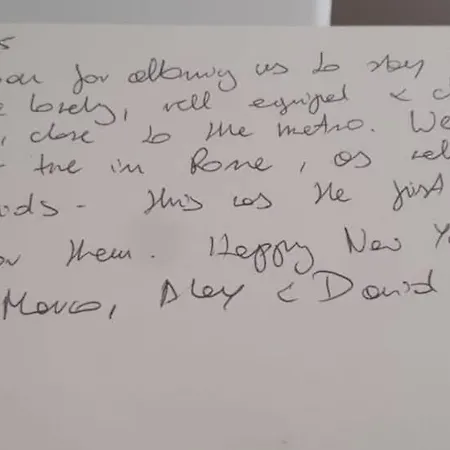 for allowing us to stay
lovely, well equiped &
, close to the metro. We
in Rome, as wel
- this was the first
them. Happy New Y
Marco, Alex & David